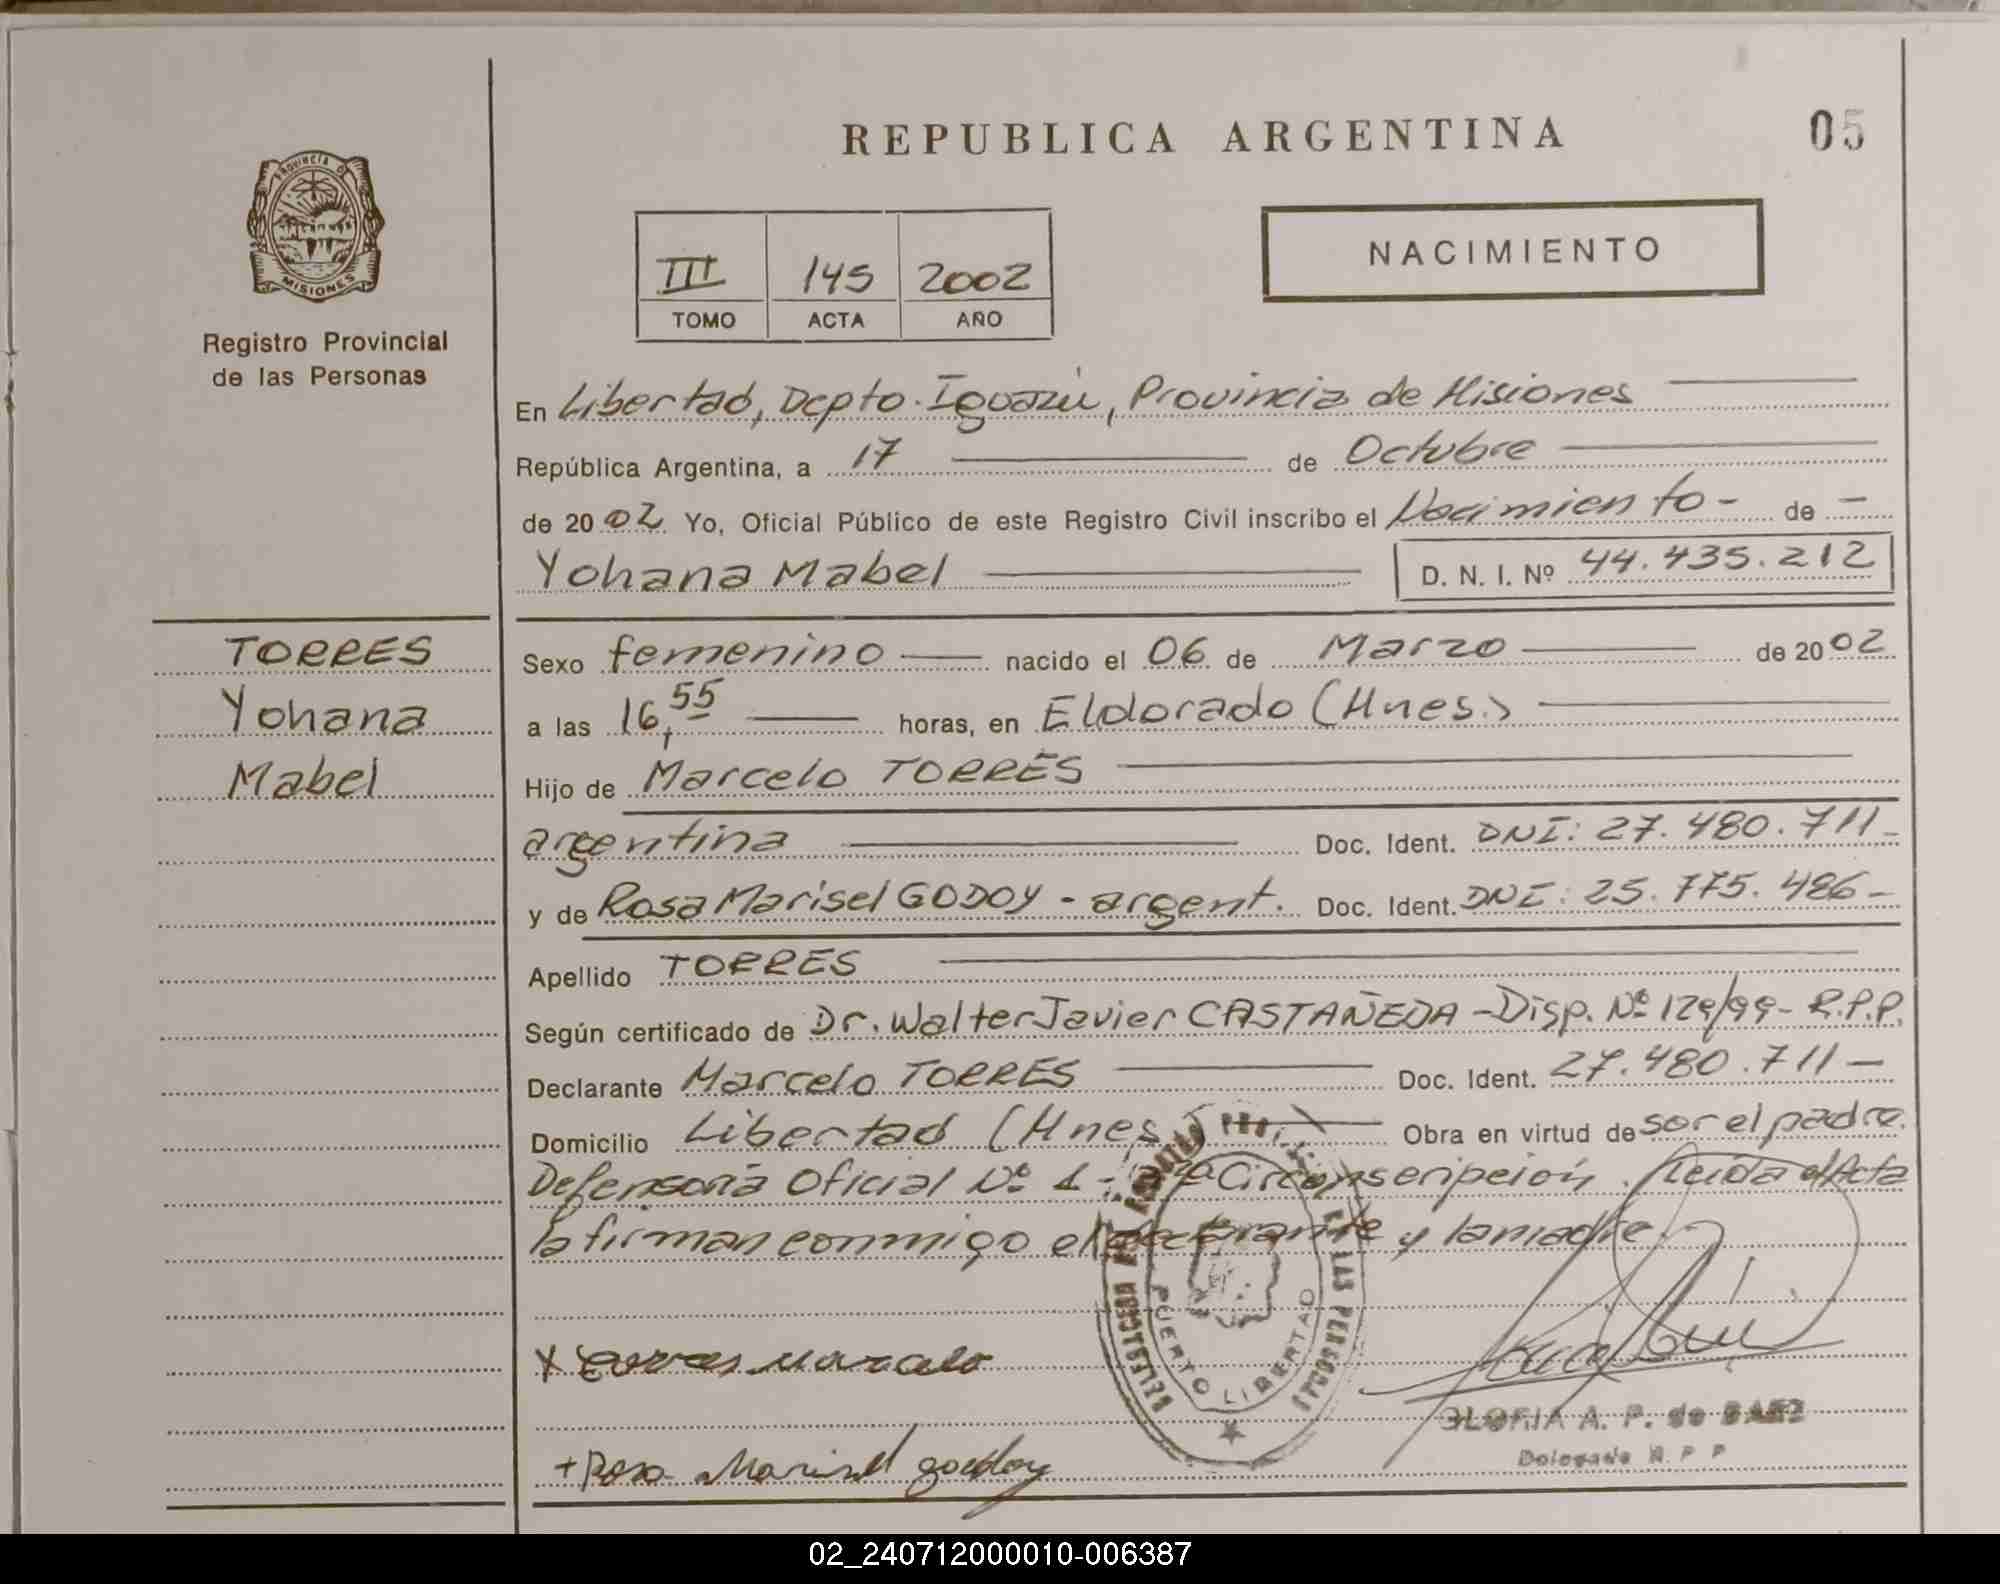 REPUBLICA ARGENTINA
05
PROVINCIA DE
MISIONES
Registro Provincial
de las Personas
III 145 2002
TOMO ACTA AÑO
NACIMIENTO
En Libertad, Depto. Iguazú, Provincia de Misiones
República Argentina, a 17 de Octubre
de 2002 Yo, Oficial Público de este Registro Civil inscribo el Nacimiento - de -
Yohana Mabel D. N. I. Nº 44.435.212
TORRES
Yohana
Mabel
Sexo femenino nacido el 06 de Marzo de 2002
a las 16,55 horas, en Eldorado (Mnes.)
Hijo de Marcelo TORRES
argentina Doc. Ident. DNI: 27.480.711-
y de Rosa Marisel GODOY - argent. Doc. Ident. DNI: 25.775.486-
Apellido TORRES
Según certificado de Dr. Walter Javier CASTAÑEDA - Disp. Nº 129/99 - R.P.P.
Declarante Marcelo TORRES Doc. Ident. 27.480.711-
Domicilio Libertad (Mnes.) Obra en virtud de ser el padre.
Defensoría Oficial Nº 1 - Circunscripción. Leída el Acta
la firman conmigo el declarante y la madre.
PUERTO LIBERTAD
LAS PERSONAS
x torres marcelo
+ Rosa Marisel godoy
GLORIA A. P. de BAEZ
Delegada R. P. P
02_240712000010-006387